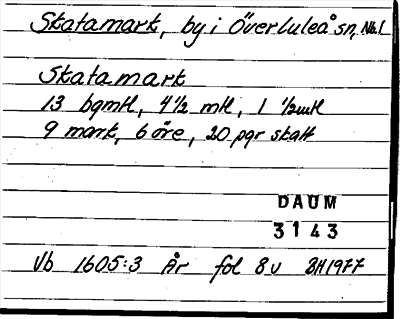 Skatamark, by i Överluleå sn, Nb.
Skatamark
13 bgmtl, 4 1/2 mtl, 1 1/2mtl
9 mark, 6 öre, 20 pgr skatt
DAUM
3143
Vb 1605:3 År fol 8v BH1977